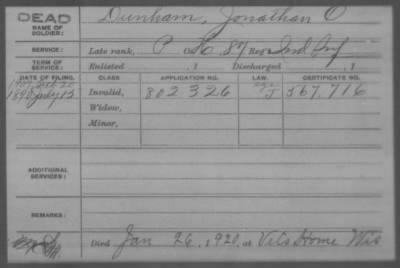 DEAD
NAME OF SOLDIER:
Dunham, Jonathan O
SERVICE:
Late rank, P Co. K, 87 Reg't Ind Inf
TERM OF SERVICE:
Enlisted , 1 Discharged , 1
DATE OF FILING. CLASS APPLICATION NO. LAW. CERTIFICATE NO.
1890 July 12 Invalid, 802326 J 567,716
Widow,
Minor,
ADDITIONAL SERVICES:
REMARKS:
Died Jan 26, 1920, at Vets Home Wis